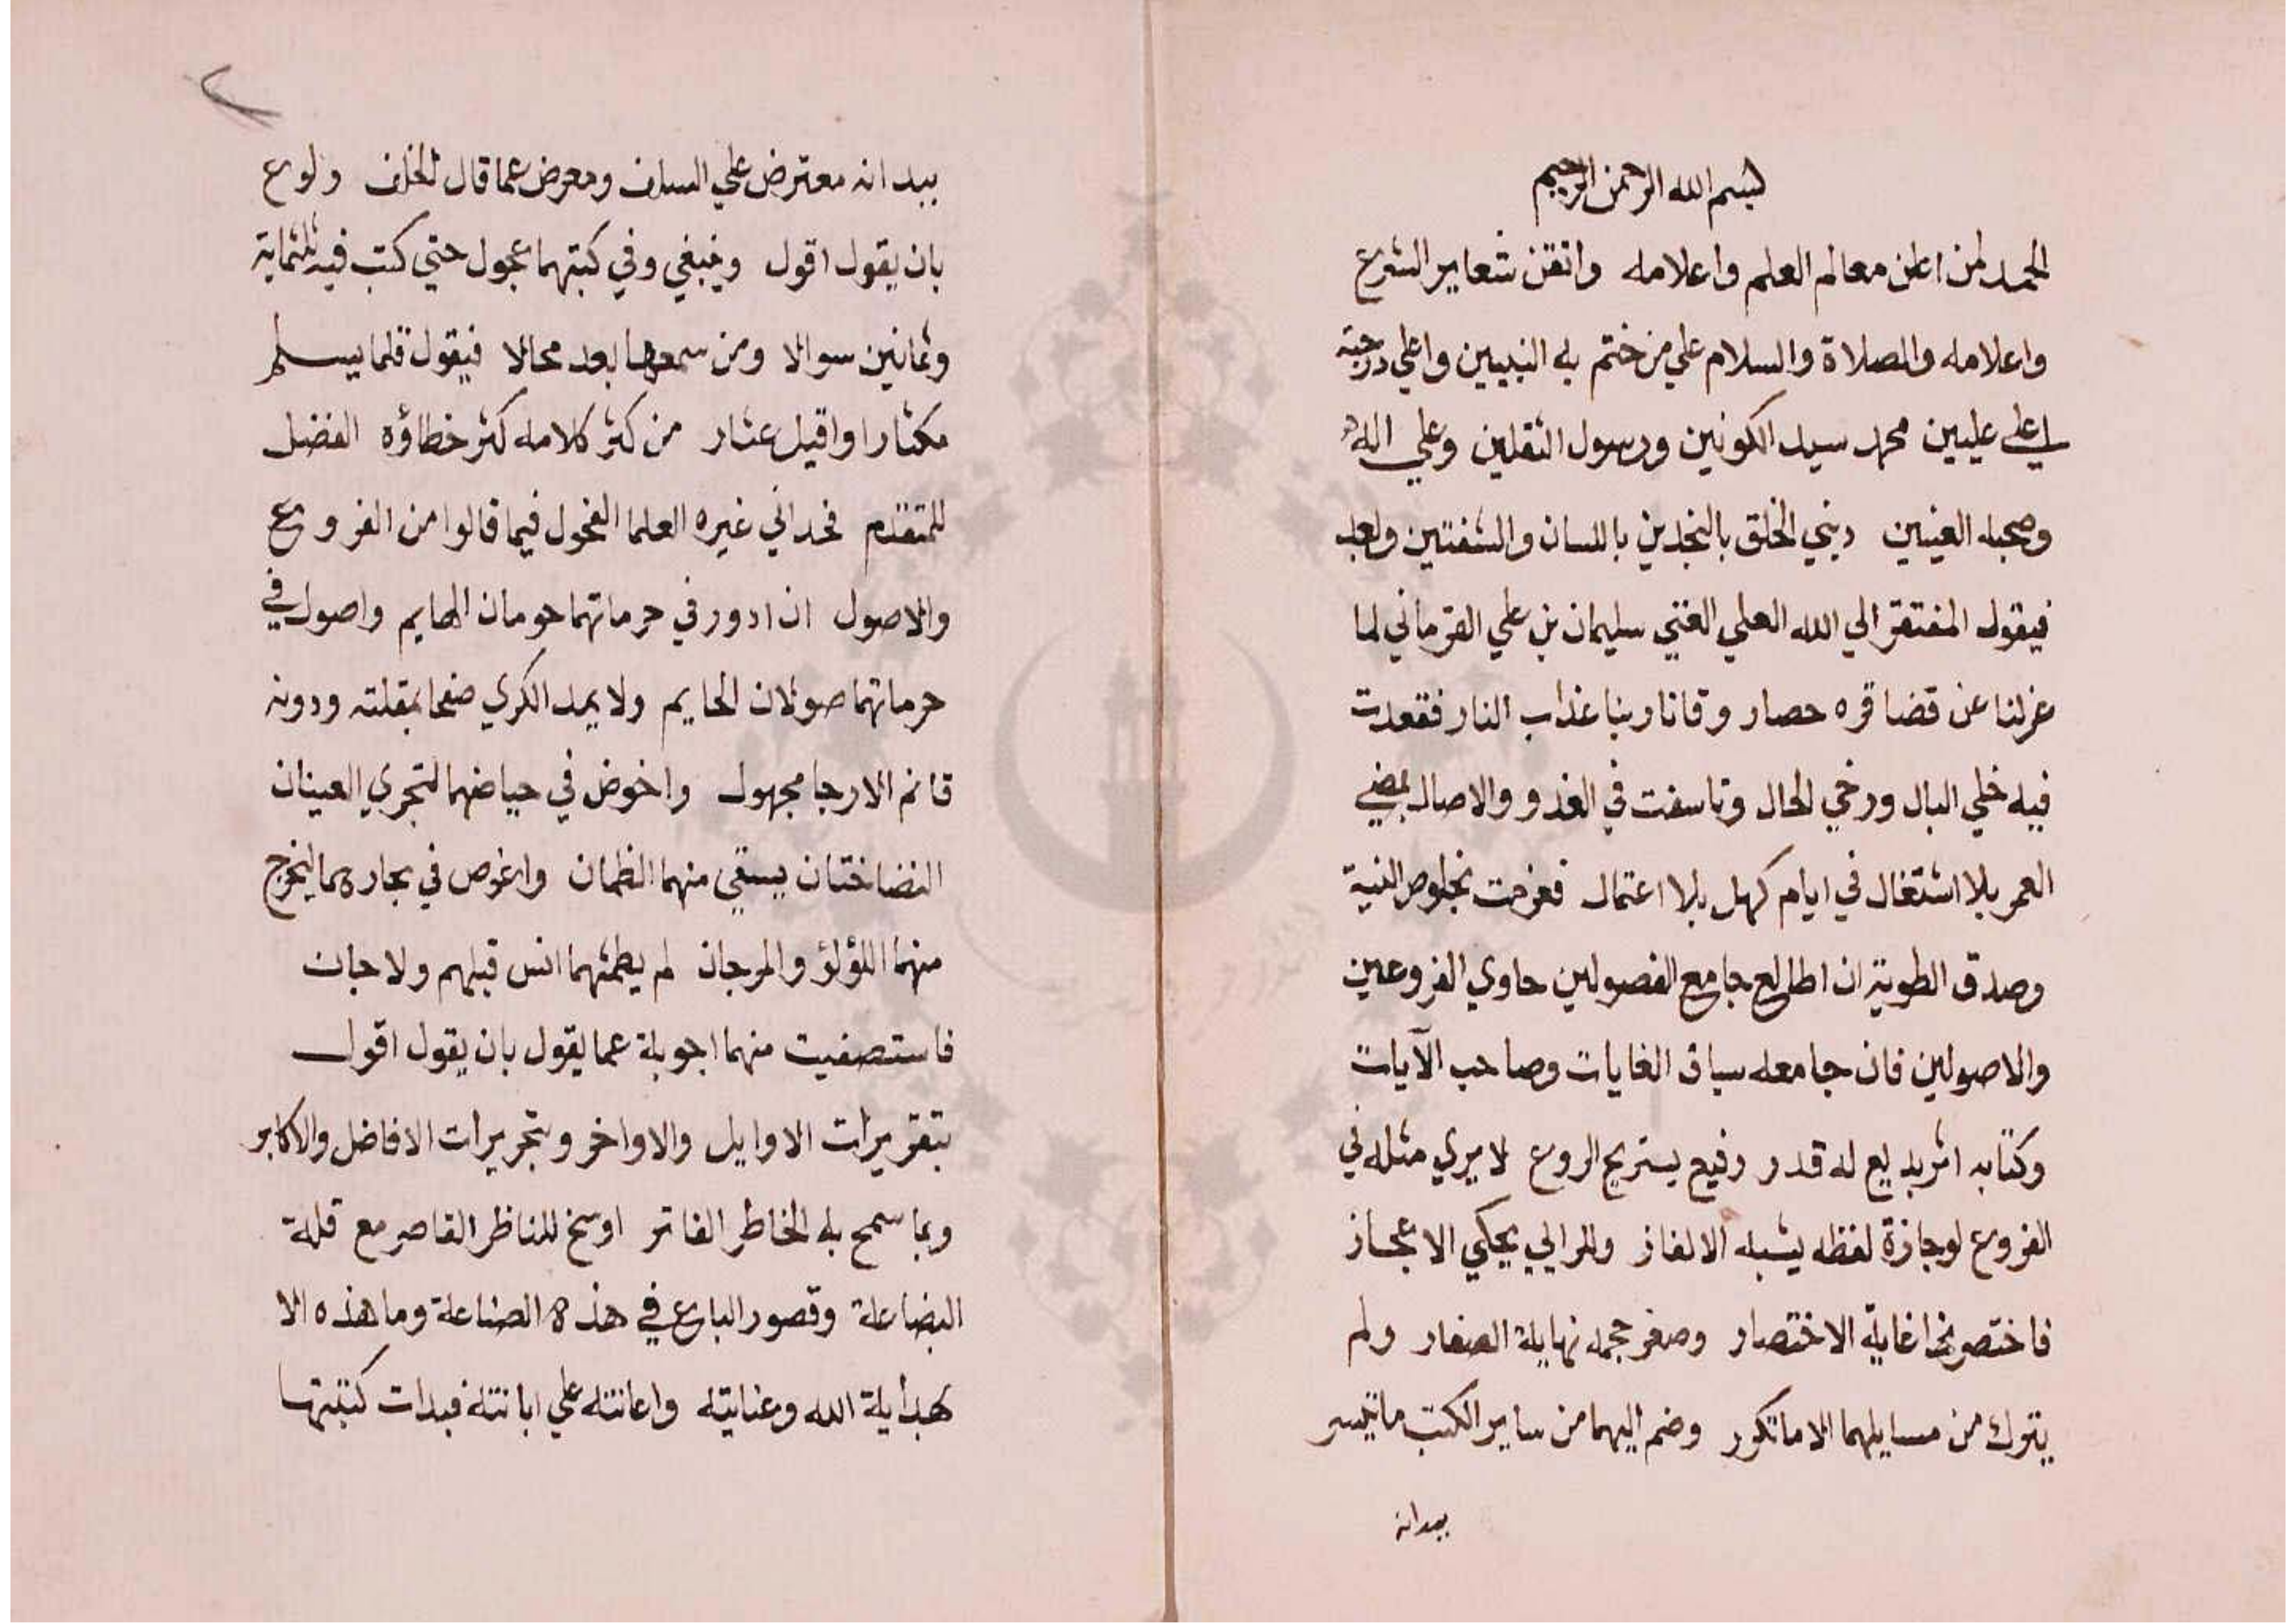 بسم الله الرحمن الرحيم
الحمد لمن اعلن معالم العلم واعلامه واتقن شعاير الشرع
واعلامه والصلاة والسلام علي من ختم به النبيين واعلي درجته
في اعلي عليين محمد سيد الكونين ورسول الثقلين وعلي اله
وصحبه العينين ديني الخلق بالنجدين باللسان والشفتين وبعد
فيقول المفتقر الي الله العلي الغني سليمان بن علي القرماني لما
عزلنا عن قضا قره حصار وقانا ربنا عذاب النار فقعدت
فيه خلي البال ورخي الحال وتاسفت في الغدو والاصال بمضي
العمر بلا اشتغال في ايام كهل بلا اعتمال فعزمت بخلوص النية
وصدق الطوية ان اطالع جامع الفصولين حاوي الفروعين
والاصولين فان جامعه سباق الغايات وصاحب الآيات
وكتابه اثر بديع له قدر رفيع يستريح الروع لا يري مثله في
الفروع لوجازة لفظه يشبه الالغاز والرايي يحكي الاعجاز
فاختصر نحوا غاية الاختصار وصغر حجمه نهاية الصغار ولم
يترك من مسايلهما الا ما تكرر وضم اليهما من ساير الكتب ما تيسر
بيد انه
بيد انه معترض علي السلف ومعرض عما قال الخلف ولوع
بان يقول اقول وينبغي وفي كتبهما عجول حتي كتب فيه ثلثماية
وثمانين سوالا ومن سمعها بعد محالا فيقول قلما يسلم
مكثارا واقيل عثار من كثر كلامه كثر خطاؤه الفضل
للمتقدم فحداني غيره العلما الفحول فيما قالوا من الفروع
والاصول ان ادور في حرماتهما حومان الحايم واصول في
حرماتهما صولان الحايم ولا يمد الكري صفحا بمقلته ودونه
قاتم الارجا مجهول واخوض في حياضهما لتجري العينان
النضاختان يستقي منهما الظمان واغوص في بحارهما ليخرج
منهما اللؤلؤ والمرجان لم يطمثهما انس قبلهم ولا جان
فاستصفيت منهما اجوبة عما يقول بان يقول اقول
بتقريرات الاوايل والاواخر وبتحريرات الافاضل والاكابر
وبما سمح به الخاطر الفاتر او سنح للناظر القاصر مع قلة
البضاعة وقصور الباع في هذه الصناعة وما هذه الا
بهداية الله وعنايته واعانته علي ابانته فبدات كتبتها